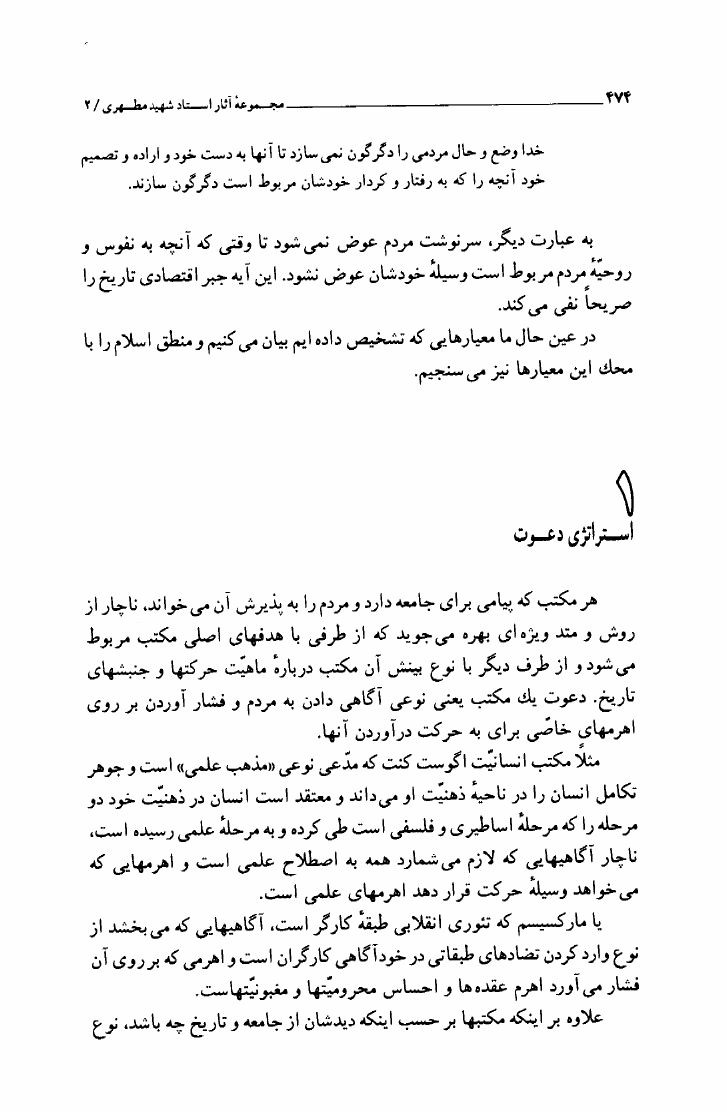 ۴۷۴ مجموعهٔ آثار استاد شهید مطهری / ۲
خدا وضع و حال مردمی را دگرگون نمی‌سازد تا آنها به دست خود و اراده و تصمیم
خود آنچه را که به رفتار و کردار خودشان مربوط است دگرگون سازند.
به عبارت دیگر، سرنوشت مردم عوض نمی‌شود تا وقتی که آنچه به نفوس و
روحیّهٔ مردم مربوط است وسیلهٔ خودشان عوض نشود. این آیه جبر اقتصادی تاریخ را
صریحاً نفی می‌کند.
در عین حال ما معیارهایی که تشخیص داده ایم بیان می‌کنیم و منطق اسلام را با
محك این معیارها نیز می‌سنجیم.
۱
استراتژی دعوت
هر مکتب که پیامی برای جامعه دارد و مردم را به پذیرش آن می‌خواند، ناچار از
روش و متد ویژه‌ای بهره می‌جوید که از طرفی با هدفهای اصلی مکتب مربوط
می‌شود و از طرف دیگر با نوع بینش آن مکتب دربارهٔ ماهیّت حرکتها و جنبشهای
تاریخ. دعوت یك مکتب یعنی نوعی آگاهی دادن به مردم و فشار آوردن بر روی
اهرمهای خاصّی برای به حرکت درآوردن آنها.
مثلاً مکتب انسانیّت اگوست کنت که مدّعی نوعی «مذهب علمی» است و جوهر
تکامل انسان را در ناحیهٔ ذهنیّت او می‌داند و معتقد است انسان در ذهنیّت خود دو
مرحله را که مرحلهٔ اساطیری و فلسفی است طی کرده و به مرحلهٔ علمی رسیده است،
ناچار آگاهیهایی که لازم می‌شمارد همه به اصطلاح علمی است و اهرمهایی که
می‌خواهد وسیلهٔ حرکت قرار دهد اهرمهای علمی است.
یا مارکسیسم که تئوری انقلابی طبقهٔ کارگر است، آگاهیهایی که می‌بخشد از
نوع وارد کردن تضادهای طبقاتی در خودآگاهی کارگران است و اهرمی که بر روی آن
فشار می‌آورد اهرم عقده‌ها و احساس محرومیّتها و مغبونیّتهاست.
علاوه بر اینکه مکتبها بر حسب اینکه دیدشان از جامعه و تاریخ چه باشد، نوع